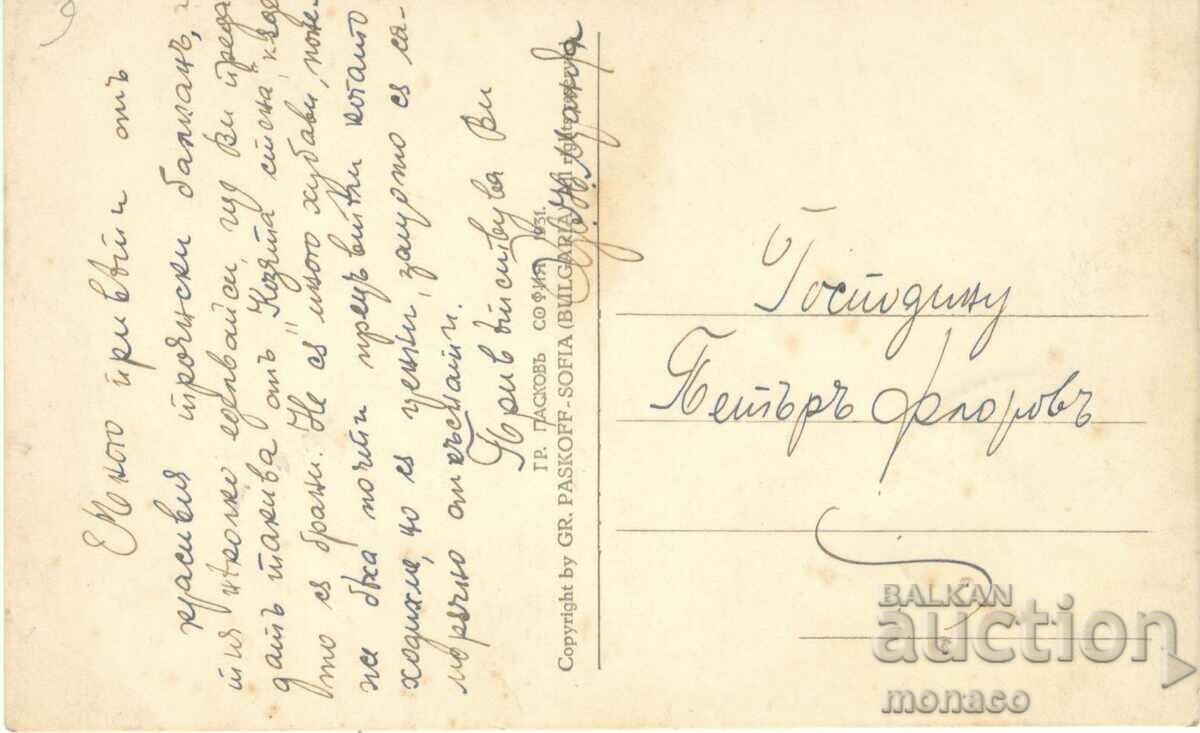 Много привѣти отъ
красивия троянски балканъ,
тия нѣколко еделвайси, що Ви преда
датъ такива отъ „Козята стена", кѫде
то сѫ брани. Не сѫ много хубави, поне
же бѣха почти прецъвтѣли когато
ходихме, но сѫ ценни, защото сѫ са-
морѫчно откѫснати.
Привѣтствува Ви
ГР. ПАСКОВЪ СОФИЯ 1931.
Copyright by GR. PASKOFF-SOFIA (BULGARIA) All rights
Господину
Петъръ Флоровъ
BALKAN
auction
monaco